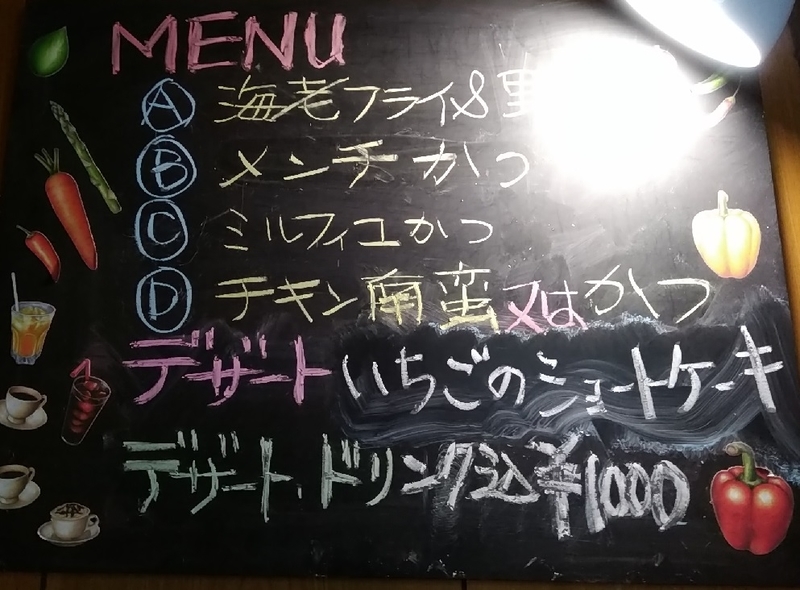 MENU
Ⓐ 海老フライ&
Ⓑ メンチかつ
Ⓒ ミルフィユかつ
Ⓓ チキン南蛮又はかつ
デザート いちごのショートケーキ
デザート、ドリンク込 ¥1000